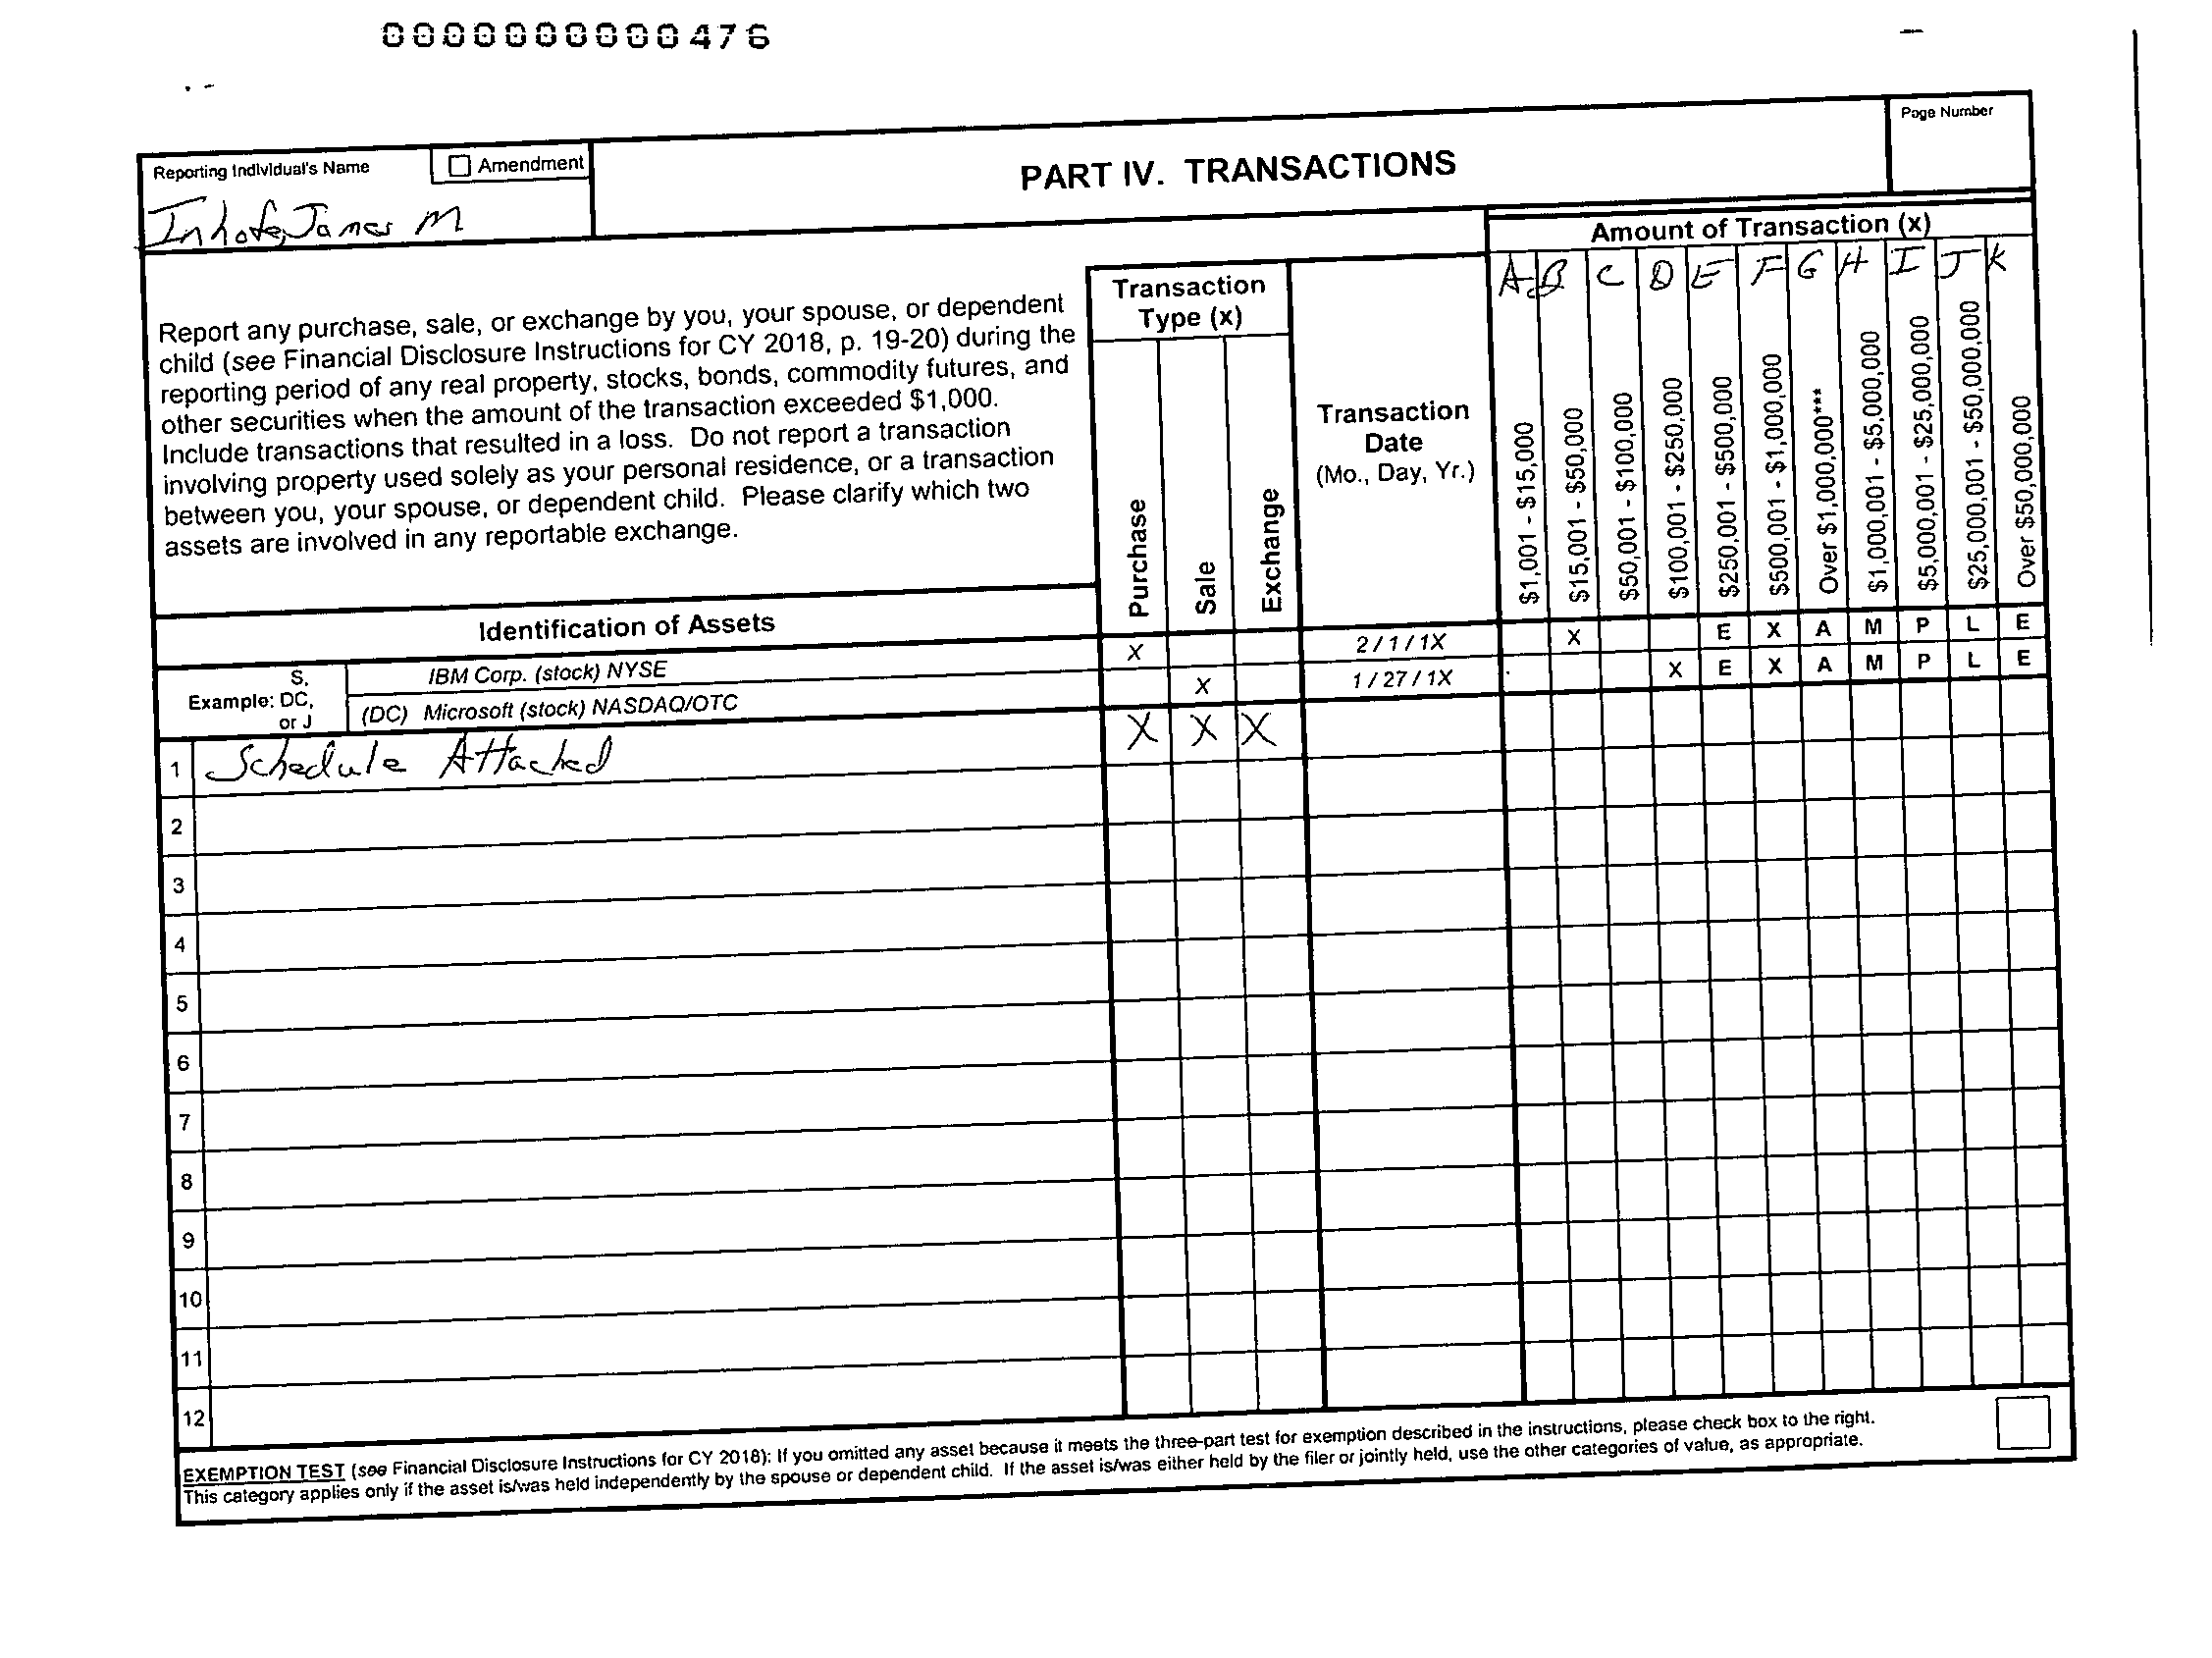 0000000000476
Page Number
Reporting Individual's Name
Amendment
PART IV. TRANSACTIONS
Inhofe, James M
Amount of Transaction (x)
A B C D E F G H I J K
Report any purchase, sale, or exchange by you, your spouse, or dependent
child (see Financial Disclosure Instructions for CY 2018, p. 19-20) during the
reporting period of any real property, stocks, bonds, commodity futures, and
other securities when the amount of the transaction exceeded $1,000.
Include transactions that resulted in a loss. Do not report a transaction
involving property used solely as your personal residence, or a transaction
between you, your spouse, or dependent child. Please clarify which two
assets are involved in any reportable exchange.
Transaction
Type (x)
Purchase
Sale
Exchange
Transaction
Date
(Mo., Day, Yr.)
$1,001 - $15,000
$15,001 - $50,000
$50,001 - $100,000
$100,001 - $250,000
$250,001 - $500,000
$500,001 - $1,000,000
Over $1,000,000***
$1,000,001 - $5,000,000
$5,000,001 - $25,000,000
$25,000,001 - $50,000,000
Over $50,000,000
Identification of Assets
Example: S, DC, or J
IBM Corp. (stock) NYSE X 2/1/1X X E X A M P L E
(DC) Microsoft (stock) NASDAQ/OTC X 1/27/1X X E X A M P L E
1 Schedule Attached X X X
2
3
4
5
6
7
8
9
10
11
12
EXEMPTION TEST (see Financial Disclosure Instructions for CY 2018): If you omitted any asset because it meets the three-part test for exemption described in the instructions, please check box to the right.
This category applies only if the asset is/was held independently by the spouse or dependent child. If the asset is/was either held by the filer or jointly held, use the other categories of value, as appropriate.